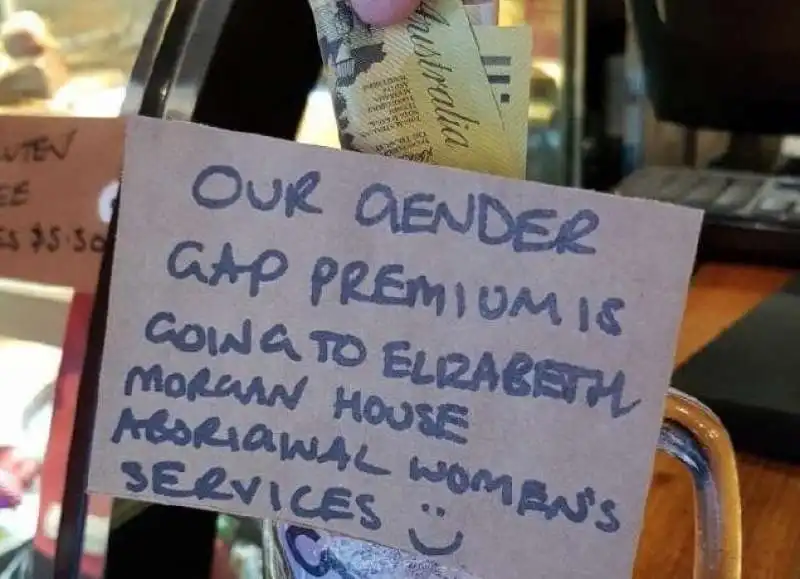 Australia
UTEN
EE
ES $5.50
OUR GENDER
GAP PREMIUM IS
GOING TO ELIZABETH
MORGAN HOUSE
ABORIGINAL WOMEN'S
SERVICES